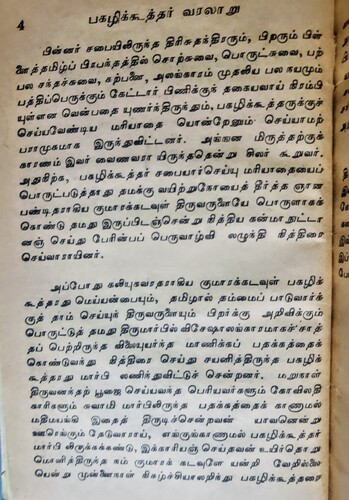 4
பகழிக்கூத்தர் வரலாறு
பின்னர் சபையிலிருந்த திரிசுதந்திரரும், பிறரும் பிள்
ளைத்தமிழ்ப் பிரபந்தத்தில் சொற்சுவை, பொருட்சுவை, பற்
பல சந்தச்சுவை, கற்பனை, அலங்காரம் முதலிய பலநயமும்
பத்திப்பெருக்கும் கேட்டார் பிணிக்குந் தகையவாய் நிரம்பி
யுள்ளன வென்பதை யுணர்ந்திருந்தும், பகழிக்கூத்தருக்குச்
செய்யவேண்டிய மரியாதை யொன்றேனும் செய்யாமற்
பராமுகமாக இருந்துவிட்டனர். அங்ஙன மிருத்தற்குக்
காரணம் இவர் வைணவரா யிருந்ததென்று சிலர் கூறுவர்.
அதுகிடக்க, பகழிக்கூத்தர் சபையார்செய்யு மரியாதையைப்
பொருட்படுத்தாது தமக்கு வயிற்றுநோயைத் தீர்த்த ஞான
பண்டிதராகிய குமாரக்கடவுள் திருவருளையே பொருளாகக்
கொண்டு தமது இருப்பிடஞ்சென்று நித்திய கன்மாநுட்டா
னஞ் செய்து பேரின்பப் பெருவாழ்வி லழுந்தி நித்திரை
செய்வாராயினர்.
அப்போது கலியுகவரதராகிய குமாரக்கடவுள் பகழிக்
கூத்தரது மெய்யன்பையும், தமிழால் தம்மைப் பாடுவார்க்
குத் தாம் செய்யுந் திருவருளையும் பிறர்க்கு அறிவிக்கும்
பொருட்டுத் தமது திருமார்பில் விசேஷாலங்காரமாகச் சாத்
தப் பெற்றிருந்த விலையுயர்ந்த மாணிக்கப் பதக்கத்தைக்
கொண்டுவந்து நித்திரை செய்து சயனித்திருந்த பகழிக்
கூத்தரது மார்பி லணிந்துவிட்டுச் சென்றனர். மறுநாள்
திருவனந்தற் பூஜை செய்யவந்த பெரியவர்களும் கோவிலதி
காரிகளும் சுவாமி மார்பிலிருந்த பதக்கத்தைக் காணாமல்
மதிமயங்கி இதைத் திருடிச்சென்றவன் யாவனென்று
ஊரெங்கும் தேடுவாராய், எங்குங்காணாமல் பகழிக்கூத்தர்
மார்பி லிருக்கக்கண்டு, இக்காரியஞ் செய்தவன் உயிர்தோறு
மொளித்திருந்த நம் குமாரக் கடவுளே யன்றி வேறில்லை
யென்று முன்னைநாள் நிகழ்ச்சியாலறிந்து பகழிக்கூத்தரை